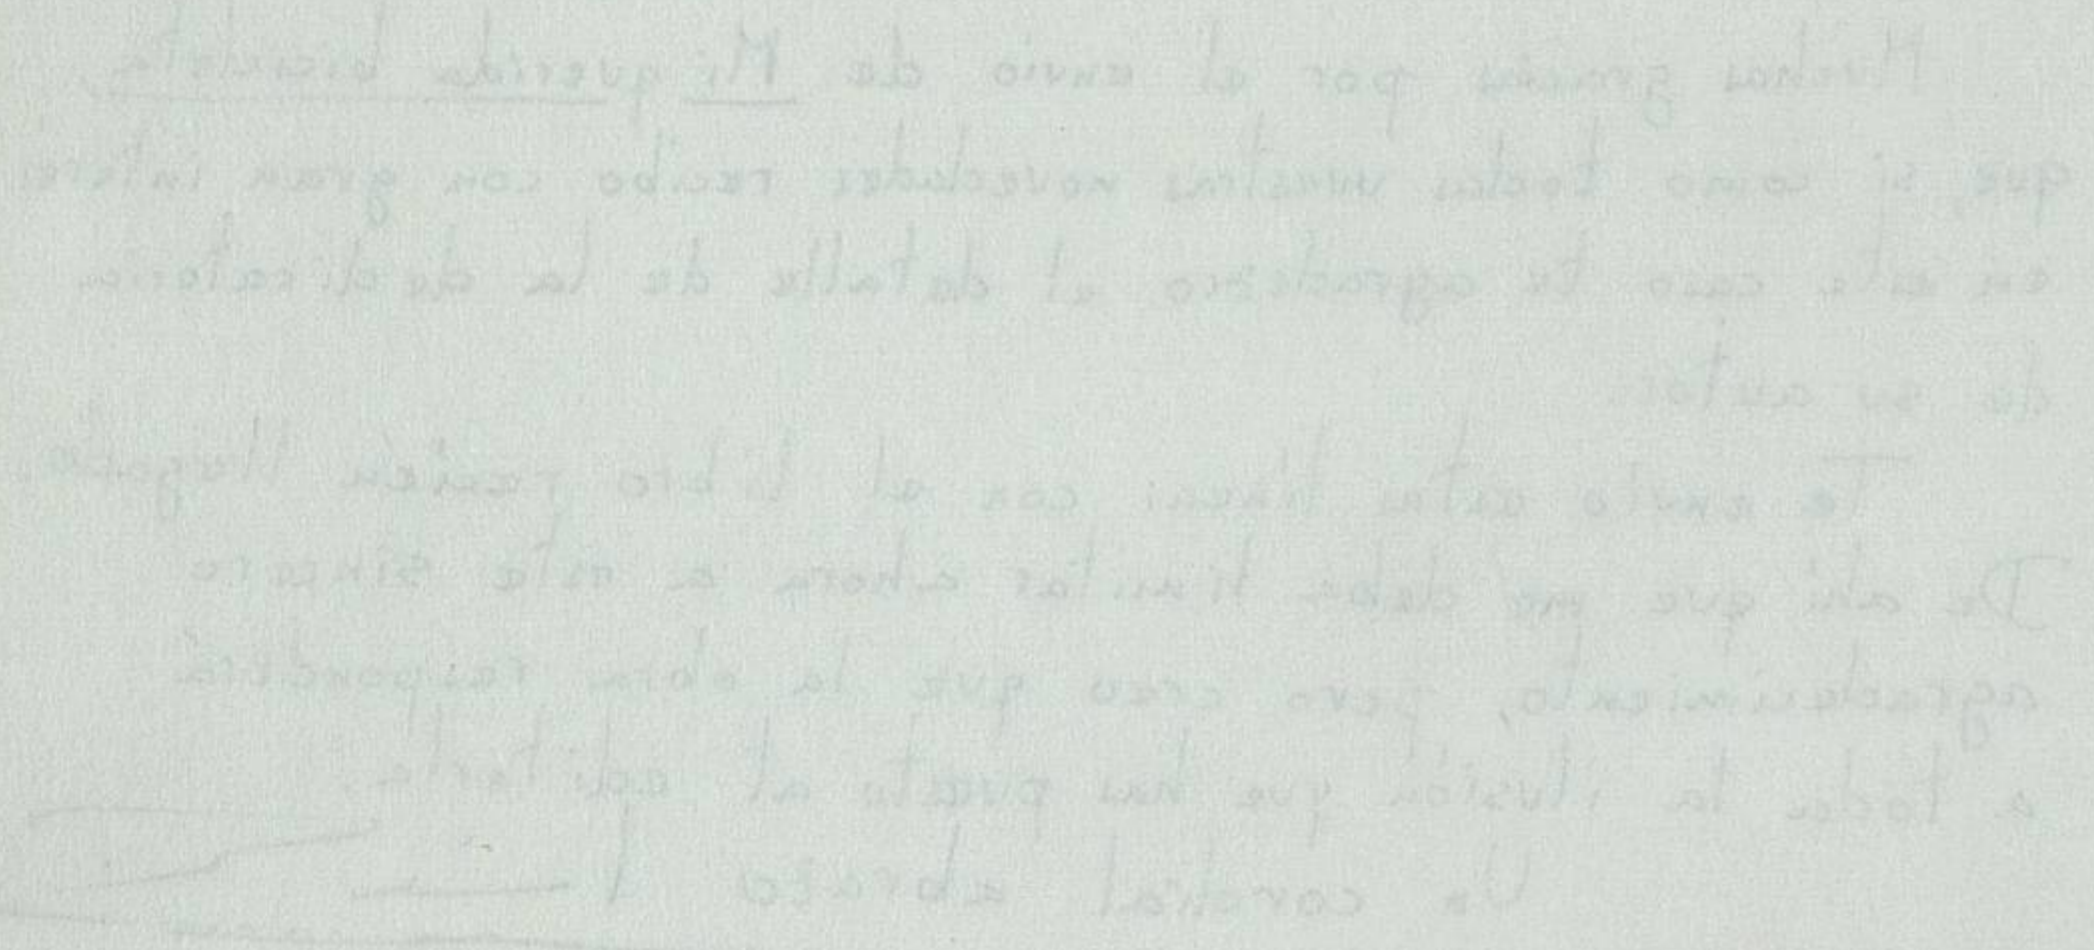 Muchas gracias por el envio de Mi querida bicicleta,
que si como todas vuestras novedades recibo con gran interés
en este caso te agradezco el detalle de la dedicatoria
de su autor.
Te envío estas líneas con el libro recien llegado.
De ahí que me deba limitar ahora a este sincero
agradecimiento, pero creo que la obra responderá
a toda la ilusión que has puesto al editarla.
Un cordial abrazo